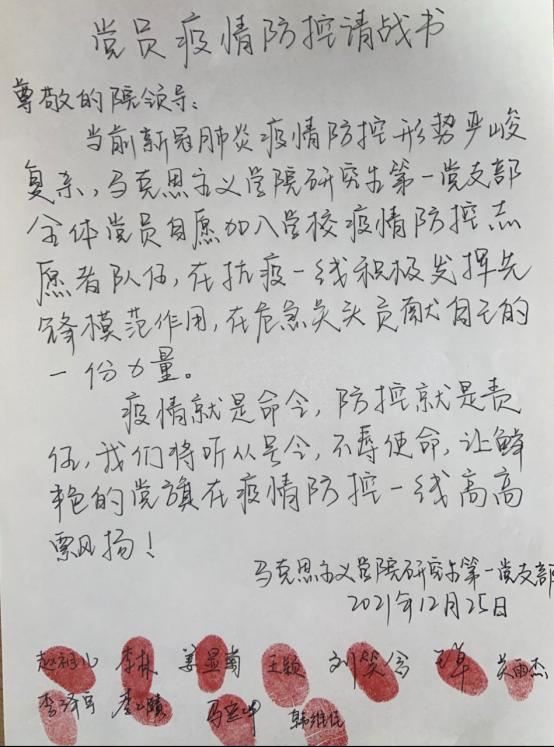 党员疫情防控请战书
尊敬的院领导:
当前新冠肺炎疫情防控形势严峻
复杂,马克思主义学院研究生第一党支部
全体党员自愿加入学校疫情防控志
愿者队伍,在抗疫一线积极发挥先
锋模范作用,在危急关头贡献自己的
一份力量。
疫情就是命令,防控就是责
任,我们将听从号令,不辱使命,让鲜
艳的党旗在疫情防控一线高高
飘扬!
马克思主义学院研究生第一党支部
2021年12月25日
李林 姜显菊 王颖 刘笑含 王草 吴雨杰
韩维佳